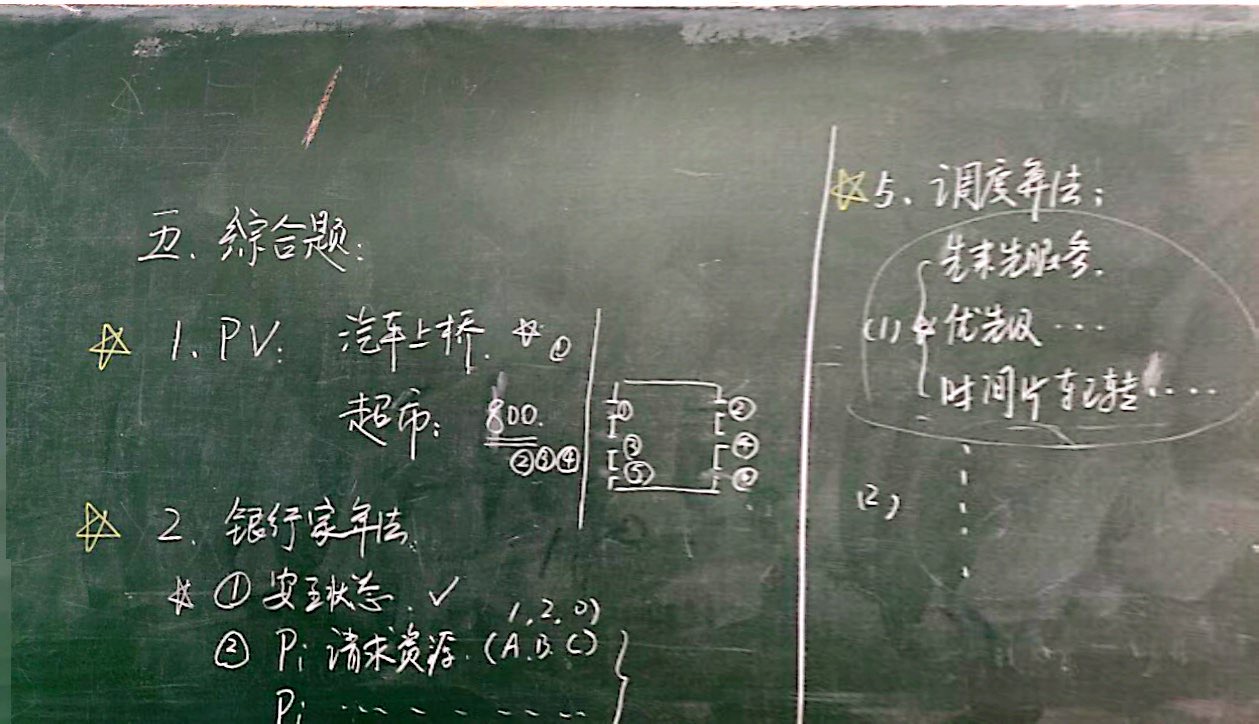 五、综合题:
☆ 1. PV: 汽车上桥. ☆ ①
超市: 800.
②③④
① ②
③ ④
⑤
☆ 2. 银行家算法.
☆ ① 安全状态. ✓
1,2,0)
② Pi 请求资源. (A,B,C)
Pi ……
☆ 5. 调度算法:
(1) 先来先服务.
优先级 ...
时间片轮转.....
(2)